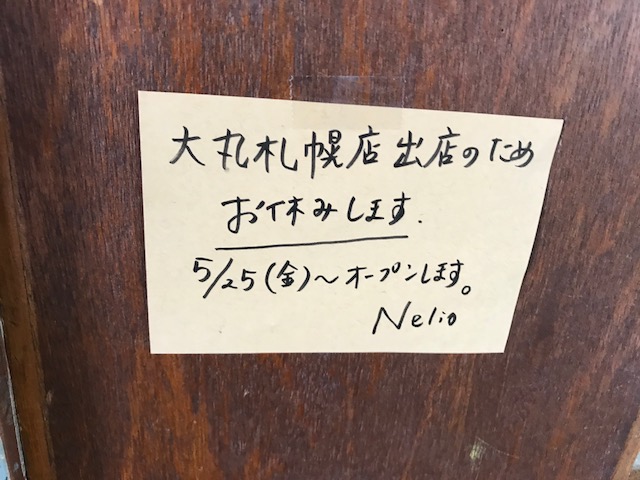 大丸札幌店出店のため
お休みします.
5/25(金)~オープンします。
Nelio